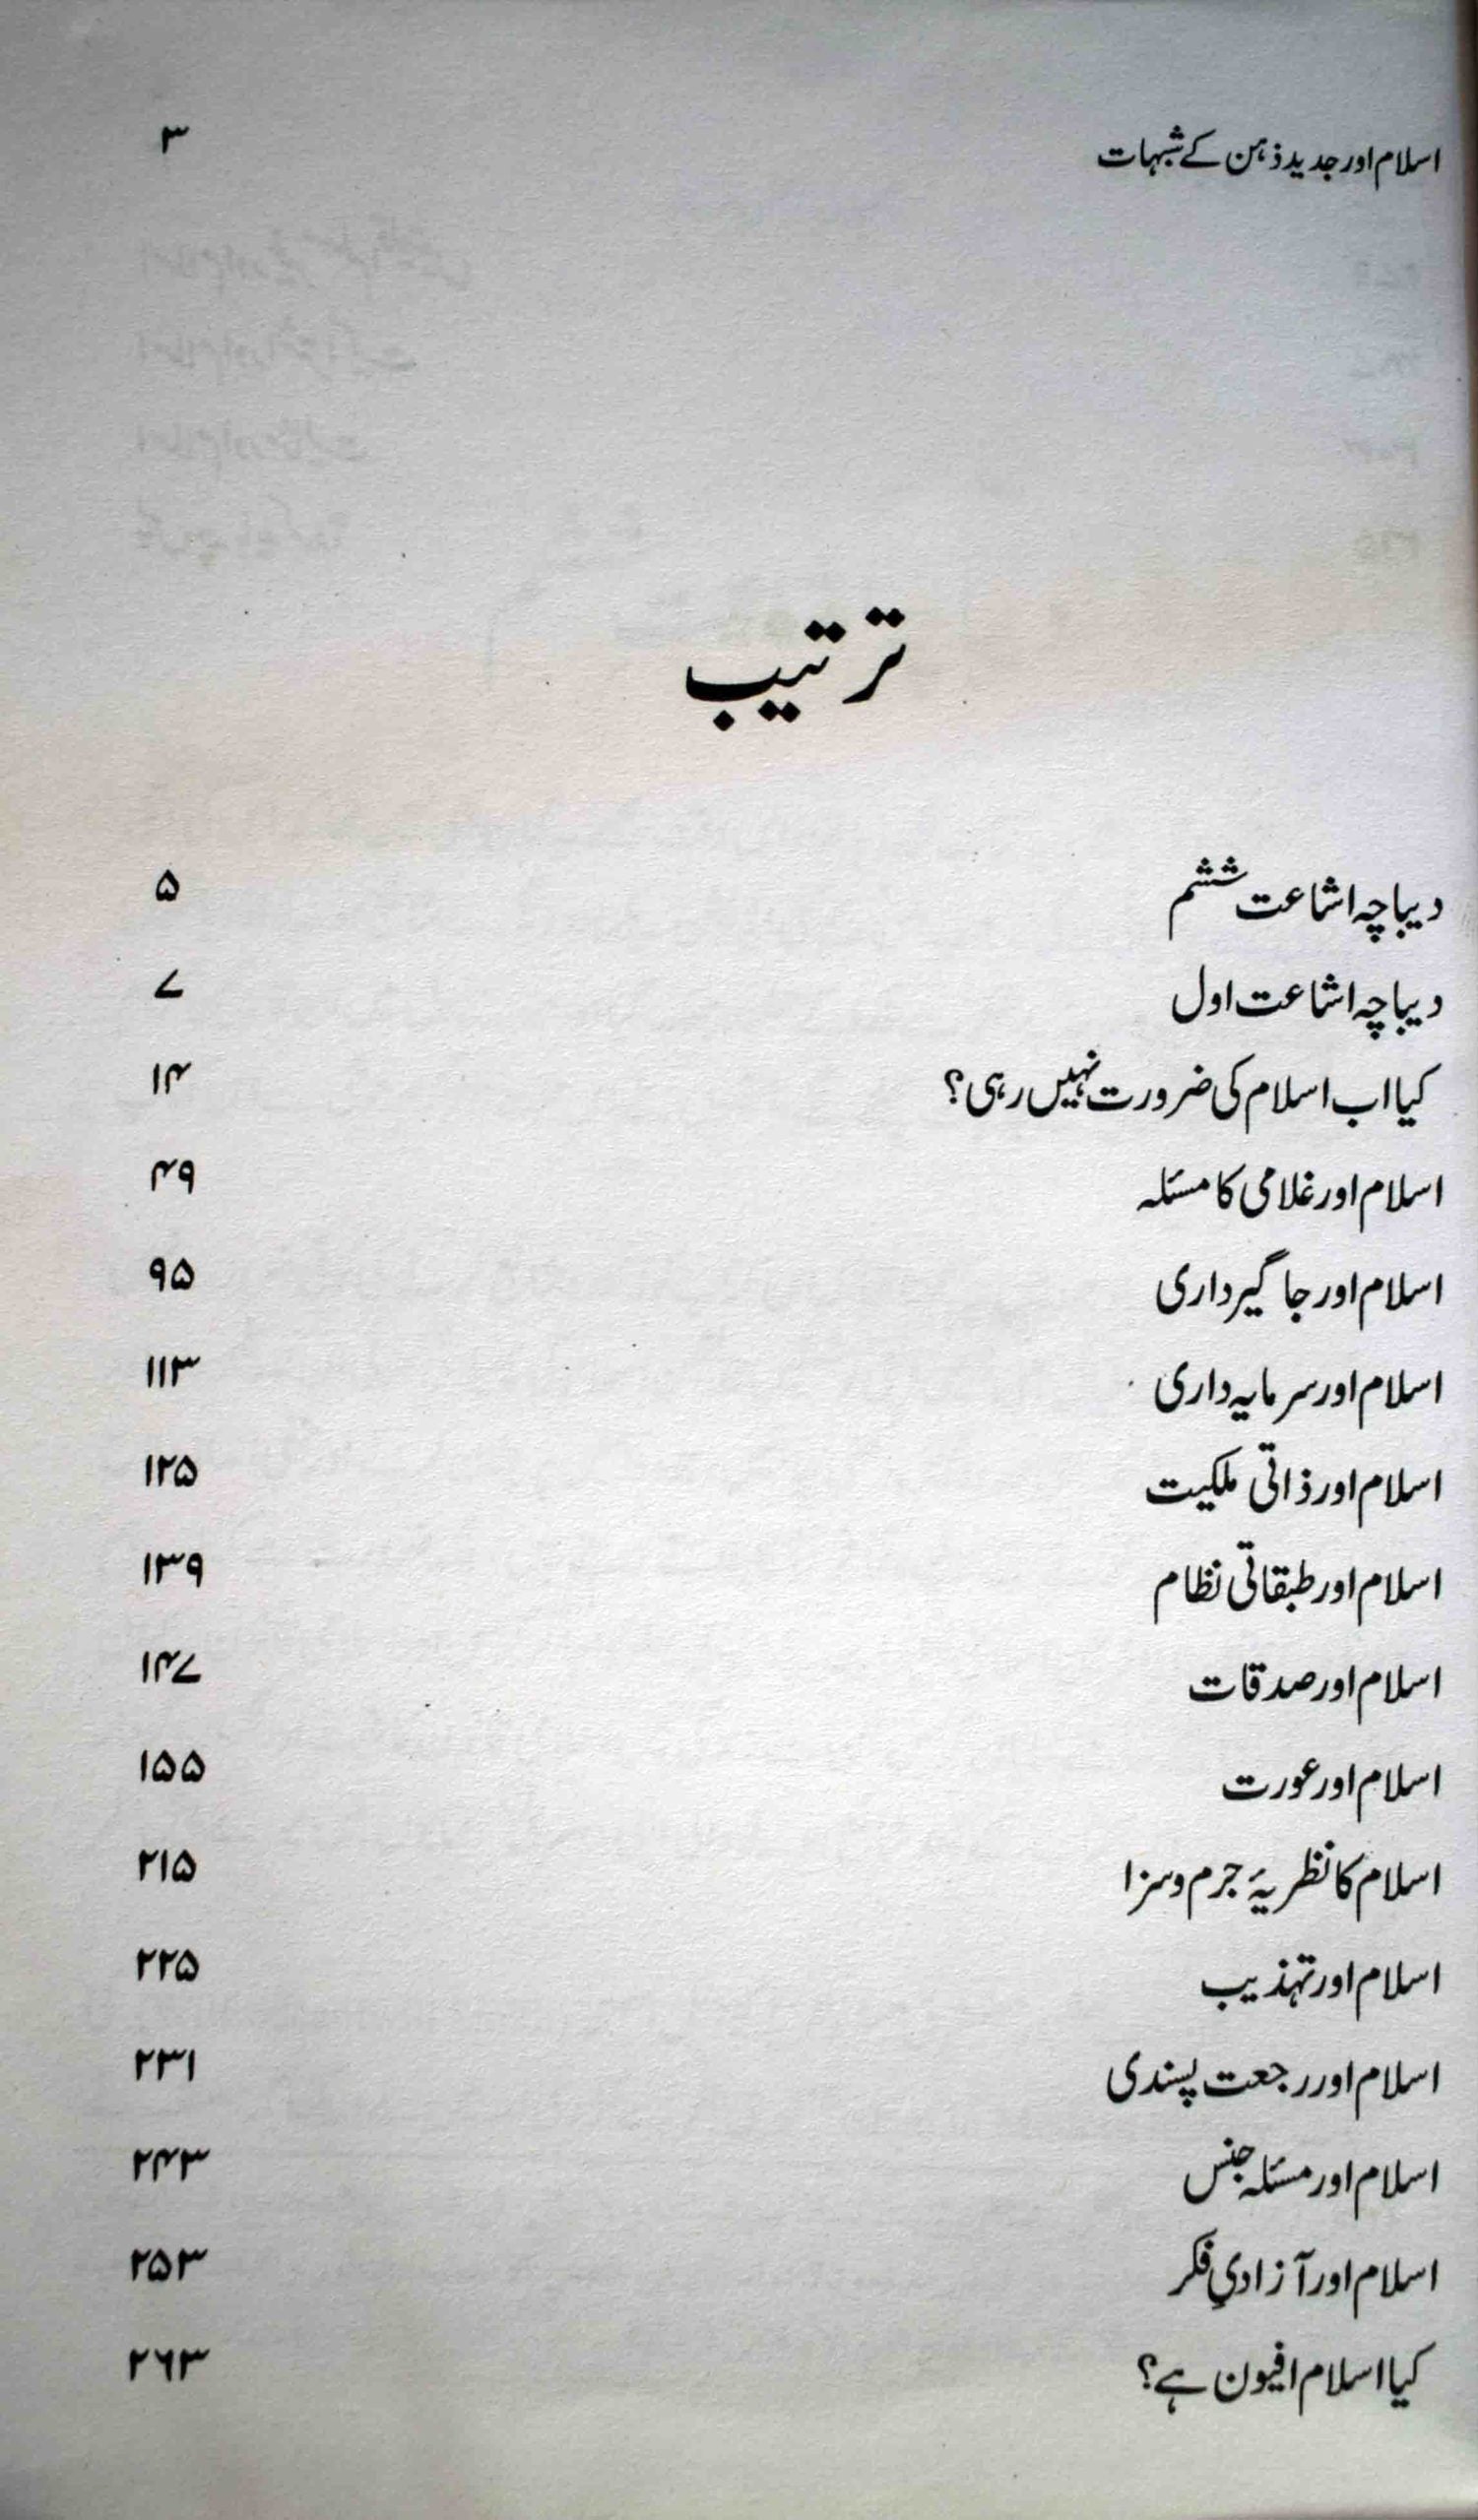 اسلام اور جدید ذہن کے شبہات ۳
ترتیب
دیباچہ اشاعت ششم ۵
دیباچہ اشاعت اول ۷
کیا اب اسلام کی ضرورت نہیں رہی؟ ۱۴
اسلام اور غلامی کا مسئلہ ۴۹
اسلام اور جاگیرداری ۹۵
اسلام اور سرمایہ داری ۱۱۳
اسلام اور ذاتی ملکیت ۱۲۵
اسلام اور طبقاتی نظام ۱۳۹
اسلام اور صدقات ۱۴۷
اسلام اور عورت ۱۵۵
اسلام کا نظریۂ جرم و سزا ۲۱۵
اسلام اور تہذیب ۲۲۵
اسلام اور رجعت پسندی ۲۳۱
اسلام اور مسئلہ جنس ۲۴۳
اسلام اور آزادیِ فکر ۲۵۳
کیا اسلام افیون ہے؟ ۲۶۳